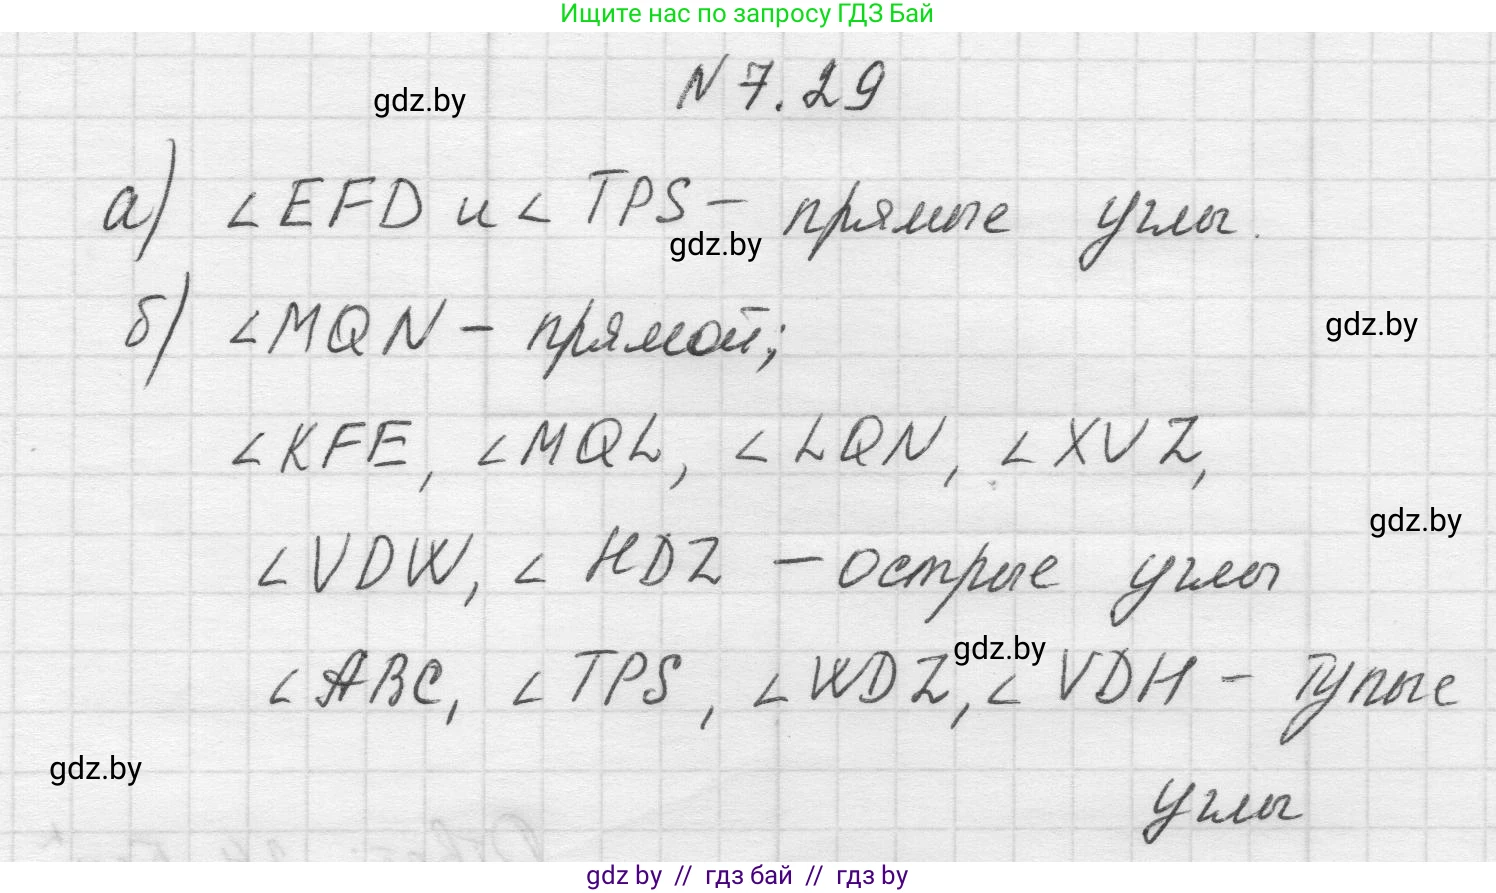 Ищите нас по запросу ГДЗ Бай
N 7.29
gdz.by
а) ∠EFD и ∠TPS – прямые углы.
gdz.by
б) ∠MQN – прямой;
gdz.by
∠KFE, ∠MQL, ∠LQN, ∠XVZ,
gdz.by
∠VDW, ∠HDZ – острые углы
gdz.by
∠ABC, ∠TPS, ∠WDZ, ∠VDH – тупые
gdz.by
углы
gdz by // гдз бай // гдз by